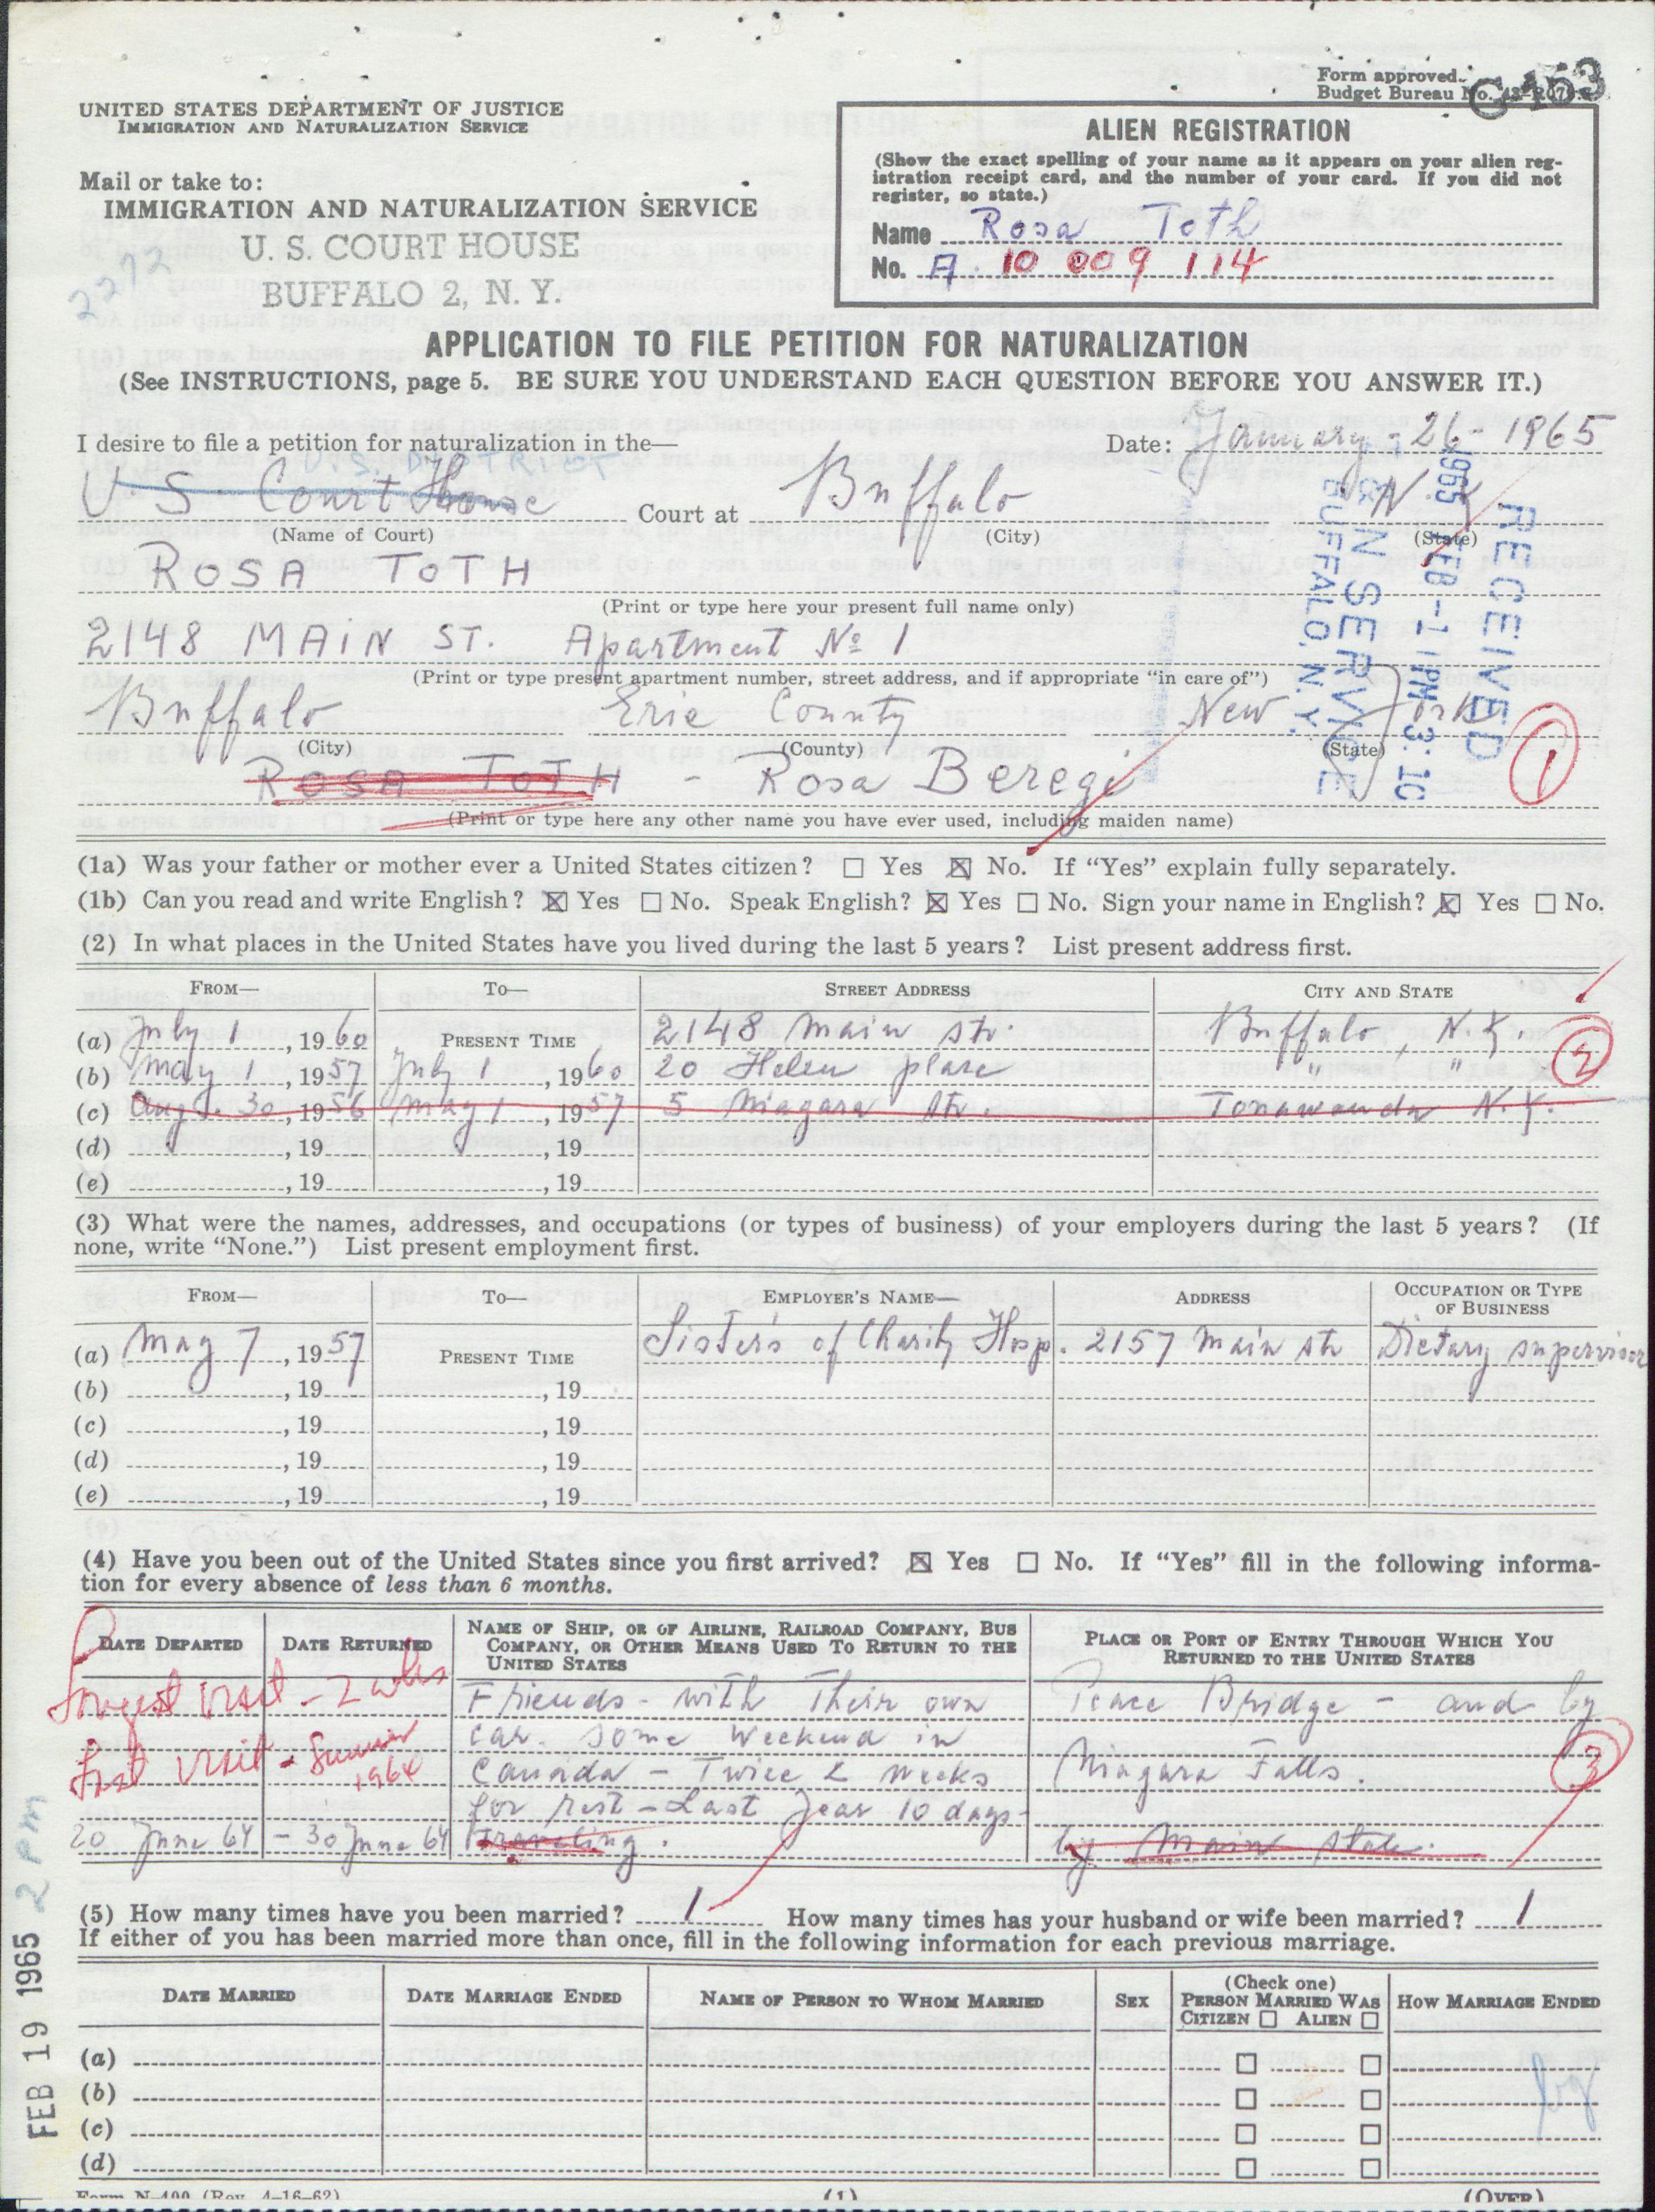 Form approved.
Budget Bureau No. 43-R079.
C-153
UNITED STATES DEPARTMENT OF JUSTICE
IMMIGRATION AND NATURALIZATION SERVICE
Mail or take to:
IMMIGRATION AND NATURALIZATION SERVICE
U. S. COURT HOUSE
BUFFALO 2, N. Y.
2272
ALIEN REGISTRATION
(Show the exact spelling of your name as it appears on your alien reg-
istration receipt card, and the number of your card. If you did not
register, so state.)
Name Rosa Toth
No. A. 10 009 114
APPLICATION TO FILE PETITION FOR NATURALIZATION
(See INSTRUCTIONS, page 5. BE SURE YOU UNDERSTAND EACH QUESTION BEFORE YOU ANSWER IT.)
I desire to file a petition for naturalization in the— Date: January - 26 - 1965
U.S. DISTRICT
U. S. Court House Court at Buffalo N.Y.
(Name of Court) (City) (State)
ROSA TOTH
(Print or type here your present full name only)
2148 MAIN ST. Apartment № 1
(Print or type present apartment number, street address, and if appropriate “in care of”)
Buffalo Erie County New York
(City) (County) (State)
ROSA TOTH - Rosa Beregi
(Print or type here any other name you have ever used, including maiden name)
RECEIVED
1965 FEB -1 PM 3: 10
& N SERVICE
BUFFALO, N.Y.
1
(1a) Was your father or mother ever a United States citizen? ☐ Yes ☒ No. If “Yes” explain fully separately.
(1b) Can you read and write English? ☒ Yes ☐ No. Speak English? ☒ Yes ☐ No. Sign your name in English? ☒ Yes ☐ No.
(2) In what places in the United States have you lived during the last 5 years? List present address first.
FROM— TO— STREET ADDRESS CITY AND STATE
(a) July 1, 1960 PRESENT TIME 2148 Main str. Buffalo, N.Y.
(b) May 1, 1957 July 1, 1960 20 Helen place " "
2
(c) Aug. 30, 1956 May 1, 1957 5 Niagara str. Tonawanda N.Y.
(d) , 19 , 19
(e) , 19 , 19
(3) What were the names, addresses, and occupations (or types of business) of your employers during the last 5 years? (If
none, write “None.”) List present employment first.
FROM— TO— EMPLOYER'S NAME— ADDRESS OCCUPATION OR TYPE OF BUSINESS
(a) May 7, 1957 PRESENT TIME Sister's of Charity Hosp. 2157 Main str Dietary supervisor
(b) , 19 , 19
(c) , 19 , 19
(d) , 19 , 19
(e) , 19 , 19
(4) Have you been out of the United States since you first arrived? ☒ Yes ☐ No. If “Yes” fill in the following informa-
tion for every absence of less than 6 months.
DATE DEPARTED DATE RETURNED NAME OF SHIP, OR OF AIRLINE, RAILROAD COMPANY, BUS COMPANY, OR OTHER MEANS USED TO RETURN TO THE UNITED STATES PLACE OR PORT OF ENTRY THROUGH WHICH YOU RETURNED TO THE UNITED STATES
Longest visit - 2 wks Friends - with Their own Peace Bridge - and by
car. Some Weekend in
visit - Summer 1964 Canada - Twice 2 weeks Niagara Falls.
3
for rest - Last Year 10 days-
20 June 64 - 30 June 64 Traveling. by Main state.
(5) How many times have you been married? 1 How many times has your husband or wife been married? 1
If either of you has been married more than once, fill in the following information for each previous marriage.
DATE MARRIED DATE MARRIAGE ENDED NAME OF PERSON TO WHOM MARRIED SEX (Check one) PERSON MARRIED WAS CITIZEN ☐ ALIEN ☐ HOW MARRIAGE ENDED
(a) ☐ ☐
(b) ☐ ☐
(c) ☐ ☐
(d) ☐ ☐
FEB 19 1965 2 PM
Form N-400 (Rev. 4-16-62) (1) (OVER)